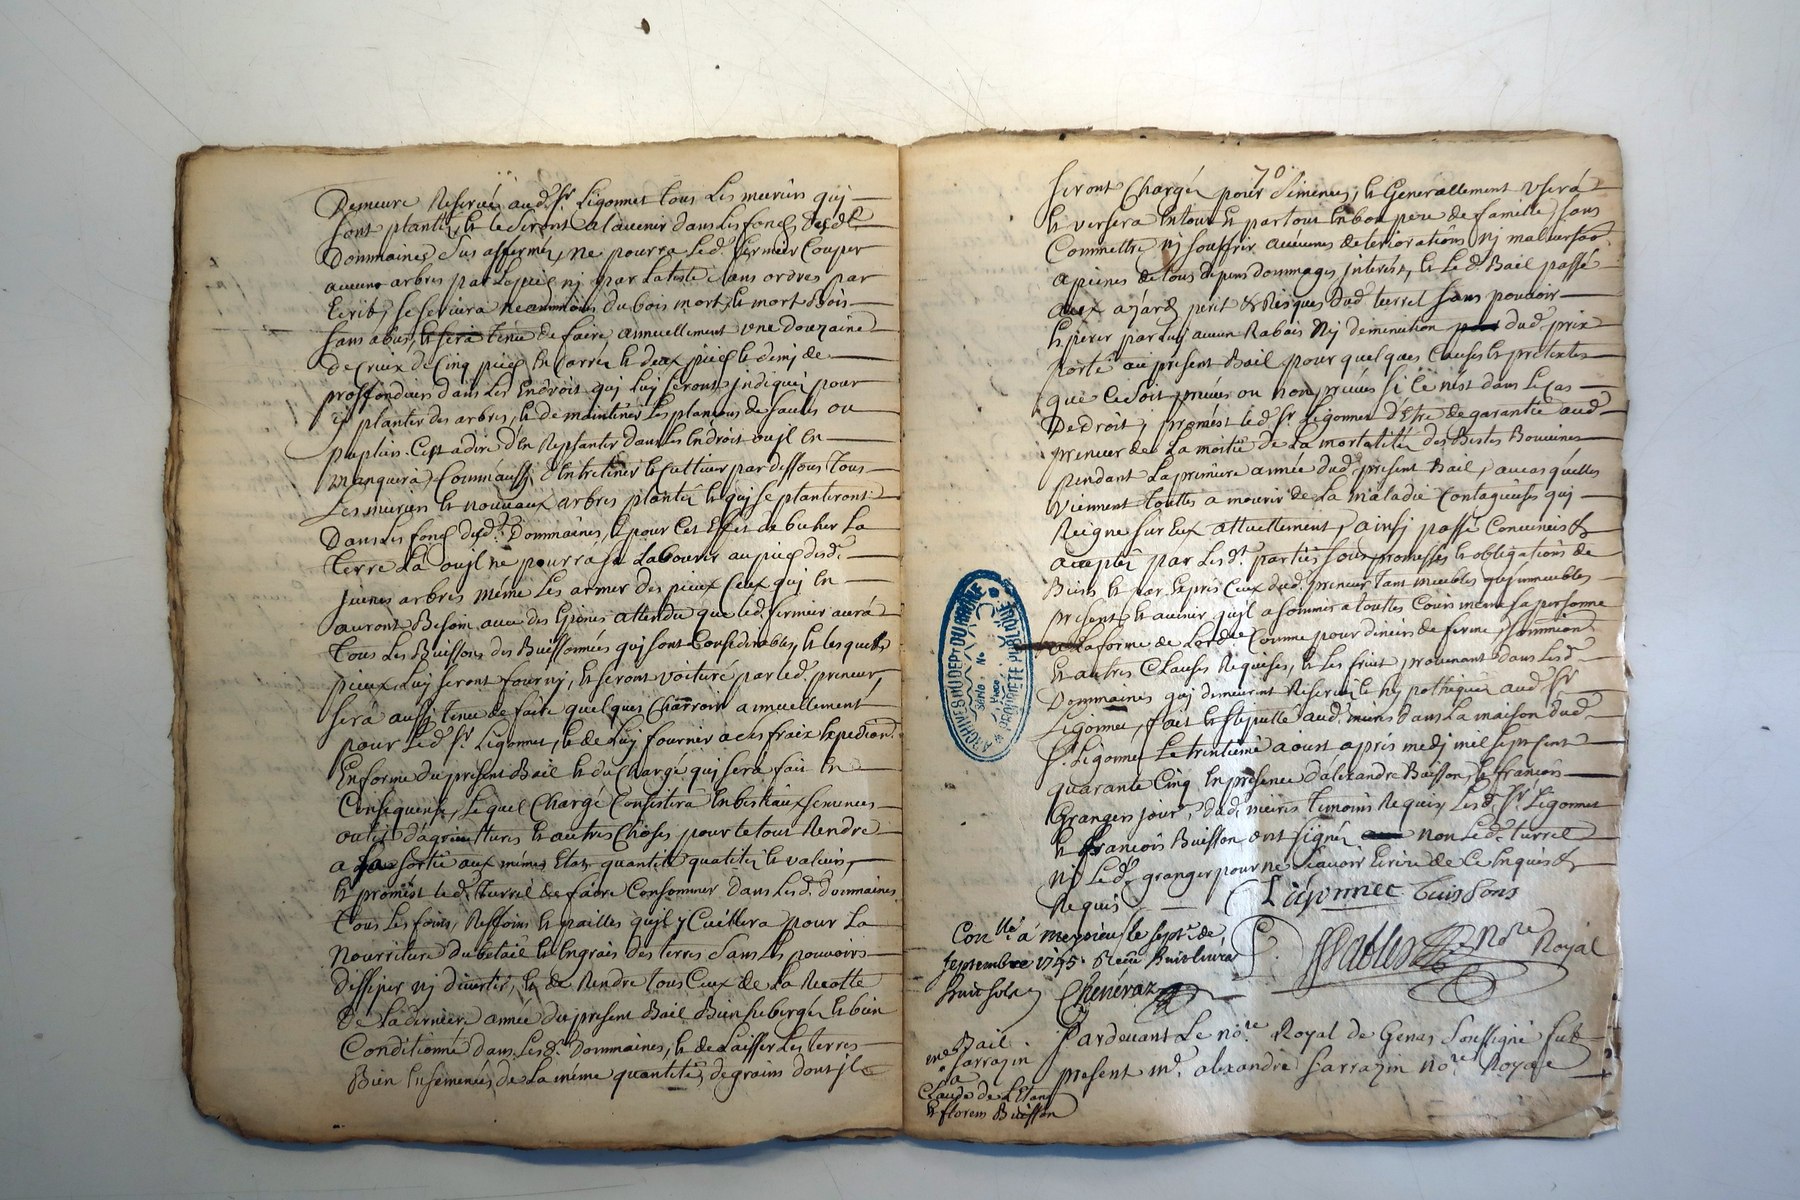 Demeure Reservé aud. Sr. Ligonnet tous les muriers qui
sont plantés, et le seront a lavenir dans les fonds desdt.
Dommaines sus affermés, ne pourra led. fermier Couper
aucuns arbres par le pied nj par la teste sans ordres par
Ecrit, se servira neanmoins du bois mort, et mort Bois
sans abus, et sera tenu de faire annuellement une douzaine
de creux de Cinq pieds en Carrés et deux pieds et demj de
proffondeur dans les Endroit quj luj seront jndiqués pour
y planter des arbres, et de maintenir les plansons de saules ou
puplier. Cest a dire d'En Replanter dans les Endroit ou jl En
manquera, Comm'aussj d'Entretenir et Cultiver par dessous tous
Les muriers et nouveaux arbres plantés et quj se planteront
Dans les fonds desd. Dommaines, et pour Cet Effet de bucher La
terre La ou jl ne pourra pas Labourer au pied desd.
jeunes arbres même les armer des pieux Ceux quj En
auront Besoin avec des Epines attendu que led. fermier aura
tous Les Buissons des Buissonnées quj sont Considerables, et lesquels
pieux Luj seront fournj, et seront voituré par led. preneur,
sera aussj tenu de faire quelques Charrois annuellement
pour Led. Sr. Ligonnet, et de Luj fournir a ses fraix Expedion.
En forme du present Bail et du Chargé quj sera fait En
Consequence, Lequel Chargé Consistera En bestiaux semences
outils d'agriculture et autres Choses pour le tout Rendre
a sa sortie aux mêmes Etat, quantité qualités et valeurs,
Et promêst led. Turrel de faire Consommer dans Lesd. dommaines
tous Les foins, Reffoins et pailles qu'jl y Cuillera pour La
nourriture du betail et Engrais des terres sans Les pouvoirs
dissiper nj divertir, et de Rendre tous Ceux de La Recolte
de La derniere année du present Bail Bien heberges et bien
Conditionné dans Lesd. Dommaines, et de Laisser Les terres
Bien Ensemencés de La même quantité de grains dont jl
70
seront Chargés pour semences, et Generallement usera
et versera En tout et par tout En bon pere de famille, sans
Commettre nj souffrir aucunes deteriorations nj malversãon
a peines de tous depens dommages jnterest, et Led. Bail passé
aux azards perit & Risques dud. turrel sans pouvoir
Esperer par luj aucun Rabais Nj deminution dud. prix
porté au present Bail pour quelques Causes et pretextes
que Ce soit preveus ou non preveus si Ce n'est dans Le Cas
de Droit, promêst led. Sr. Ligonnet d'Etre de garantie aud.
preneur de La moitié de La mortalité des Bestes Bouvines
pendant La premiere année dud. present Bail, au cas qu'elles
viennent touttes a mourir de La maladie Contagieuse quj
Reigne sur Eux attuellement, ainsj passé Convenus &
accepté par Lesdt. parties sous promesses et obligations de
Biens et par Exprés Ceux dud. preneur tant meubles qu'jmmeubles
present et avenir qu'jl a sommis a touttes Cours même sa personne
a La forme de Lord.ce Comme pour deniers de ferme, sommission
et autres Clauses Requises, et Les fruit provenant dans Lesd.
Dommaines quj demeurent Reservés et hypothequés aud. Sr.
Ligonnet, fait et stipullé aud. mions dans La maison dud.
Sr. Ligonnet Le trentieme aoust après medj mil sept cent
quarante Cinq En presence d'alexandre Buisson, et françois
Granger jour. dud. mions temoins Requis, Lesd. Sr. Ligonnet
et françois Buisson ont signés non Led. turrel
nj Led. granger pour ne sçavoir Ecrire de Ce Enquis &
Requis
Ligonnet buissons
Conllé a meysieu le septe. de
septembre 1745. Receu huit livres
huit sols
Chenéraz
Nore Royal
Bail
me. Sarrazin
a
Claude de L'Etang
et florens Buisson
Pardevant Le nore. Royal de Genas soussigné fut
present me. alexandre Sarrazin nore. Royal
ARCHIVES DU DEPT DU RHÔNE
Série No
PROPRIÉTÉ PUBLIQUE